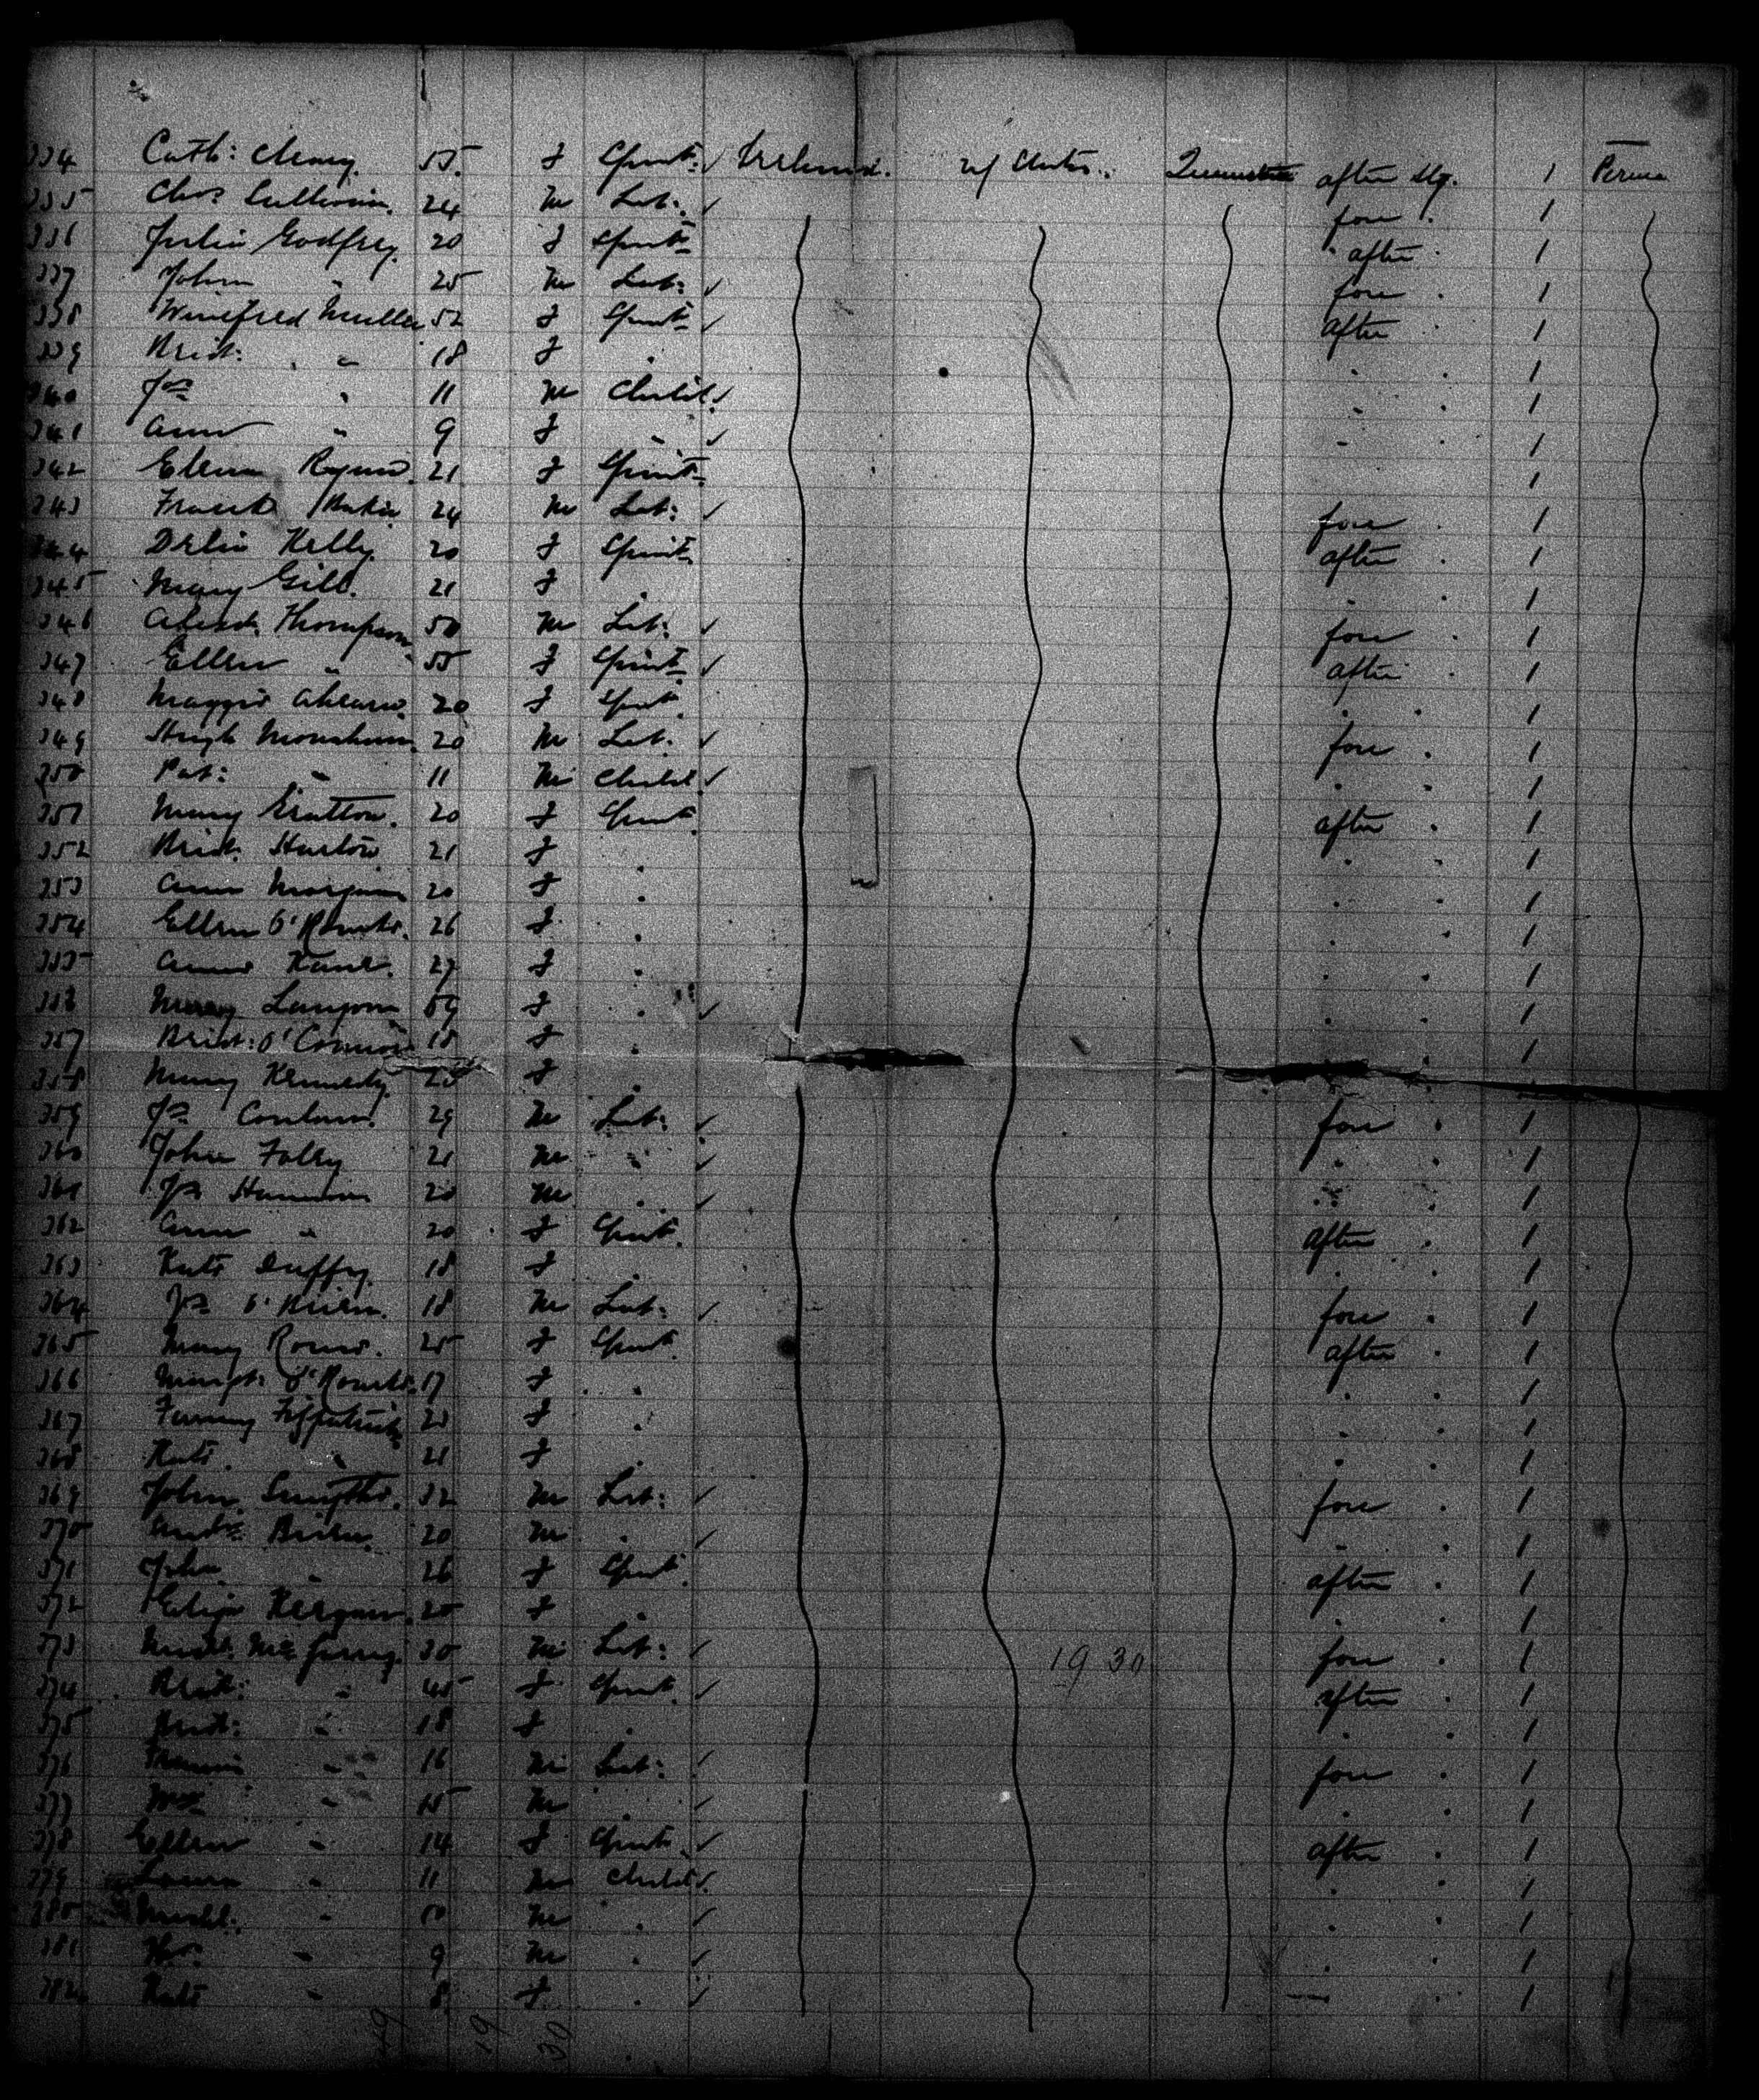 334 Cath: Cleary. 55. F Spinst: ✓ Ireland. U/ States. Queenstown after stg. 1 Perma
335 Chas Sullivan. 24 M Lab: ✓ fore . 1
336 Julia Godfrey. 20 F Spinst after . 1
337 John " 25 M Lab: ✓ fore . 1
338 Winefred Mullen 52 F Spinst ✓ after . 1
339 Brid: " 18 F . . . 1
340 Jas " 11 M Child. ✓ . . 1
341 Ann " 9 F " ✓ . . 1
342 Ellen Ryan. 21 F Spinst. 1
343 Frank 24 M Lab: ✓ fore . 1
344 Delia Kelly. 20 F Spinst. after . 1
345 Mary Gill. 21 F . . . 1
346 Alexd. Thompson 50 M Lab: ✓ fore . 1
347 Ellen " 55 F Spinst. ✓ after . 1
348 Maggie Ahearn. 20 F Spinst. . . 1
349 Hugh Monahan. 20 M Lab: ✓ fore . 1
350 Pat: " 11 M Child. ✓ . . 1
351 Mary Gratton. 20 F Spinst. after . 1
352 Brid. 21 F . . . 1
353 Ann Morgan 20 F . . . 1
354 Ellen O'Rourke. 26 F . . . 1
355 Annie Kane. 27 F . . . 1
356 Mary 59 F . ✓ . . 1
357 Brid: O'Connor 18 F . . . 1
358 Mary Kennedy F . 1
359 Jas 29 M Lab: ✓ fore . 1
360 John Folly 21 M " ✓ . . 1
361 Jas 20 M . ✓ . . 1
362 Ann " 20 F Spinst. after . 1
363 Kate Duffy. 18 F . . . 1
364 Jas O'Brien. 18 M Lab: ✓ fore . 1
365 Mary 25 F Spinst. after . 1
366 Margt: O'Rourke. 17 F . . . 1
367 Fanny Fitzpatrick F . . . 1
368 Kate. " 21 F . . . 1
369 John Smythe. 32 M Lab: ✓ fore . 1
370 Andw Brien. 20 M . ✓ . . 1
371 " 26 F Spinst. after . 1
372 Eliza F . . . 1
373 Michl. McGarry. 30 M Lab: ✓ 19 30 fore . 1
374 Brid: " 45 F Spinst. ✓ after . 1
375 Brid: " 18 F . . . 1
376 Francis " 16 M Lab: ✓ fore . 1
377 Wm " 15 M . ✓ . . 1
378 Ellen " 14 F Spinst. ✓ after . 1
379 " 11 M Child. ✓ . . 1
380 Michl. " 10 M . ✓ . . 1
381 " 9 M . ✓ . . 1
382 Kate " 8 F . ✓ . . 1
49 19 30